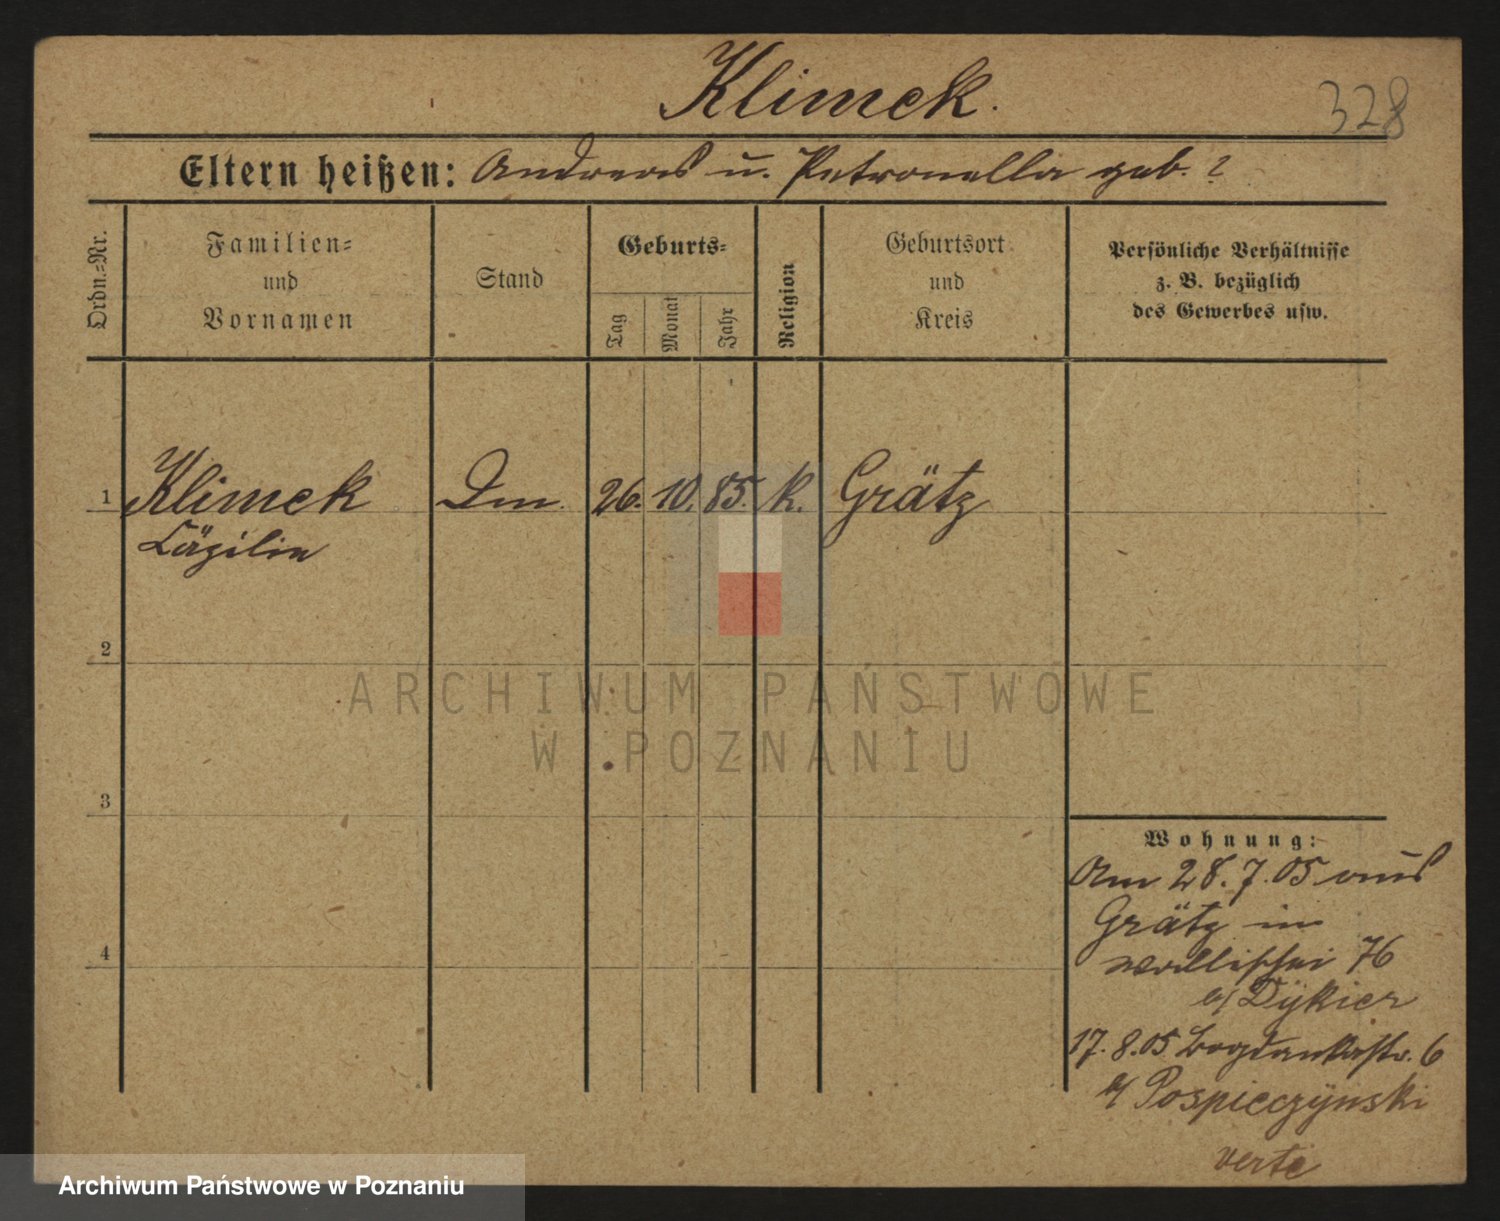 Klimek.
328
Eltern heißen: Andreas u. Petronella geb. ?
Ordn.=Nr.
Familien=
und
Vornamen
Stand
Geburts=
Tag
Monat
Jahr
Religion
Geburtsort
und
Kreis
Persönliche Verhältnisse
z. B. bezüglich
des Gewerbes usw.
1 Klimek Dm. 26. 10. 85. k. Grätz
Cäzilie
2
3
4
Wohnung:
Am 28. 7. 05 aus
Grätz in
Wallischei 76
b/ Dykier
17. 8. 05 Bogdankastr. 6
b/ Pospieczynski
verte
ARCHIWUM PAŃSTWOWE
W POZNANIU
Archiwum Państwowe w Poznaniu